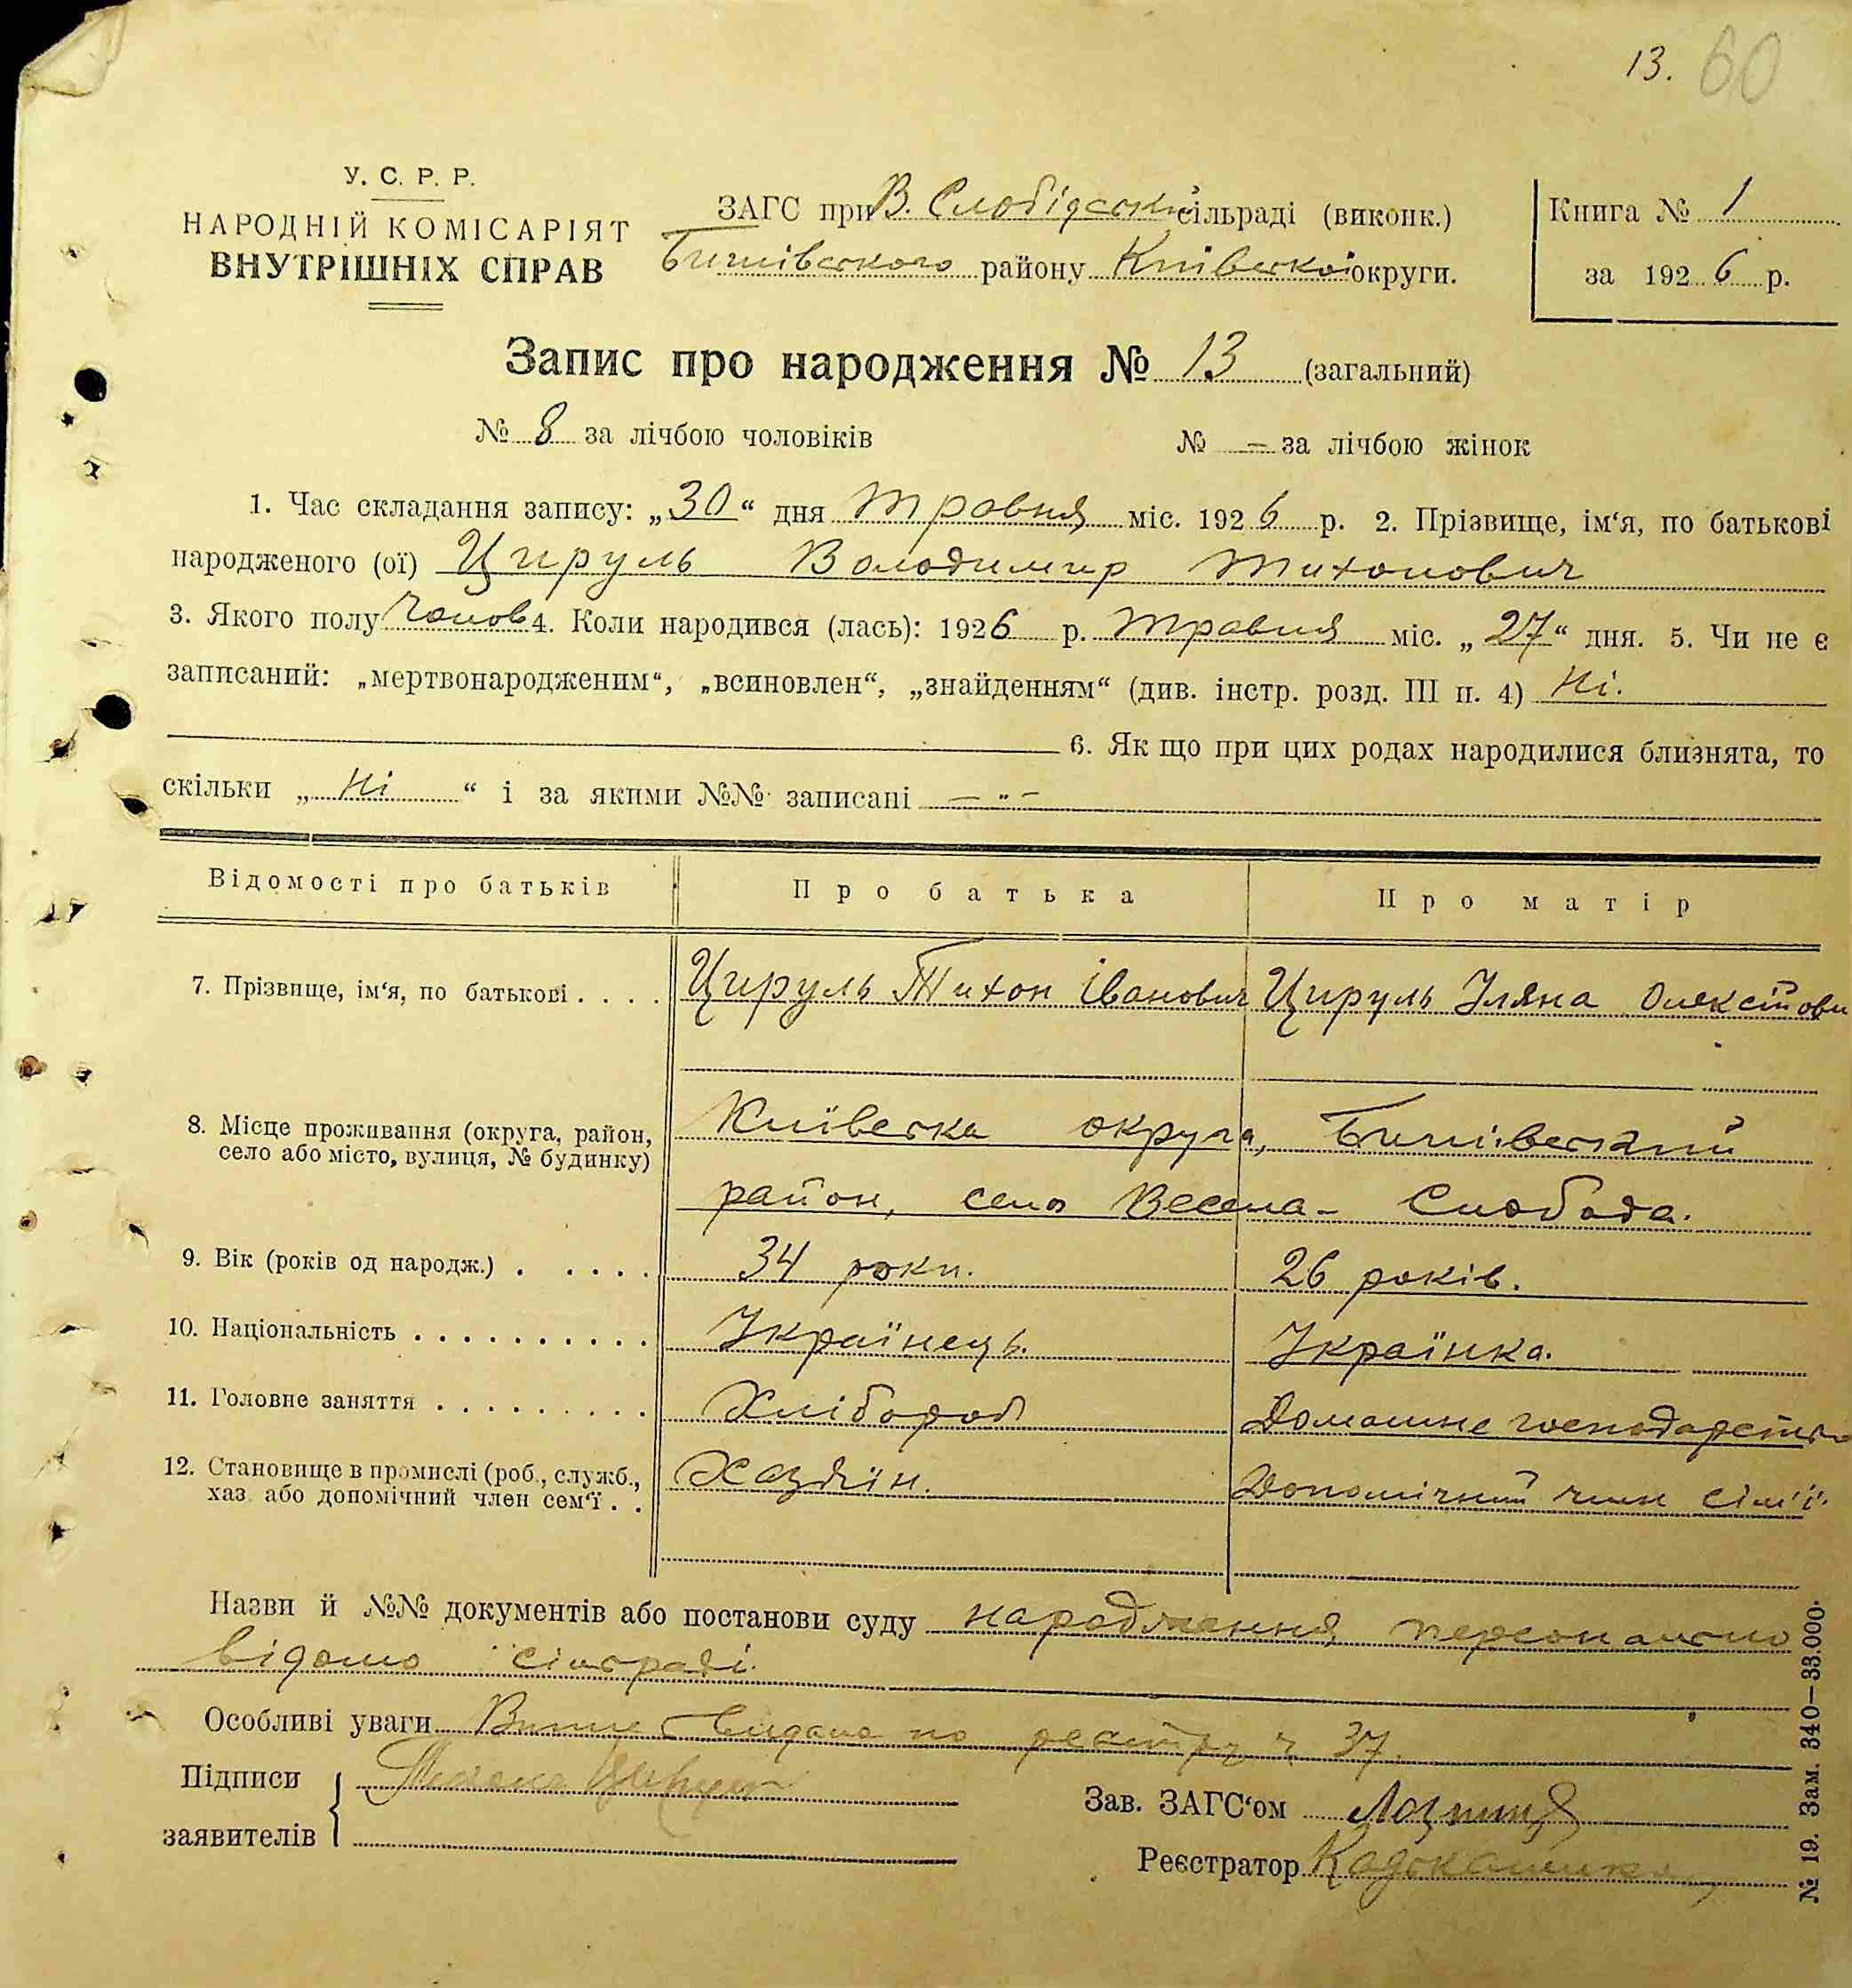 13. 60
У. С. Р. Р.
НАРОДНІЙ КОМІСАРІЯТ
ВНУТРІШНІХ СПРАВ
ЗАГС при В. Слобідській сільраді (виконк.)
Бишівського району Київської округи.
Книга № 1
за 1926 р.
Запис про народження № 13 (загальний)
№ 8 за лічбою чоловіків № — за лічбою жінок
1. Час складання запису: „30“ дня травня міс. 1926 р. 2. Прізвище, ім‘я, по батькові
народженого (ої) Цируль Володимир Тихонович
3. Якого полу чолов 4. Коли народився (лась): 1926 р. травня міс. „27“ дня. 5. Чи не є
записаний: „мертвонародженим“, „всиновлен“, „знайденням“ (див. інстр. розд. III п. 4) Ні.
6. Як що при цих родах народилися близнята, то
скільки „Ні“ і за якими №№ записані — „ —
Відомості про батьків Про батька Про матір
7. Прізвище, ім‘я, по батькові . . . . Цируль Тихон Іванович Цируль Уляна Олексіїовн
8. Місце проживання (округа, район,
село або місто, вулиця, № будинку)
Київська округа, Бишівський
район, село Весела-Слобода.
9. Вік (років од народж.) . . . . . 34 роки. 26 років.
10. Національність . . . . . . . . . . Українець. Українка.
11. Головне заняття . . . . . . . . . Хлібороб Домашне господарство
12. Становище в промислі (роб., служб.,
хаз. або допомічний член сем‘ї . .
Хазяїн. Допомічний член сім'ї.
Назви й №№ документів або постанови суду народження персонально
відомо сільраді.
Особливі уваги видано по реєстру ч 37.
Підписи
заявителів
Цируль
Зав. ЗАГС‘ом
Реєстратор
№ 19. Зам. 340—33.000.